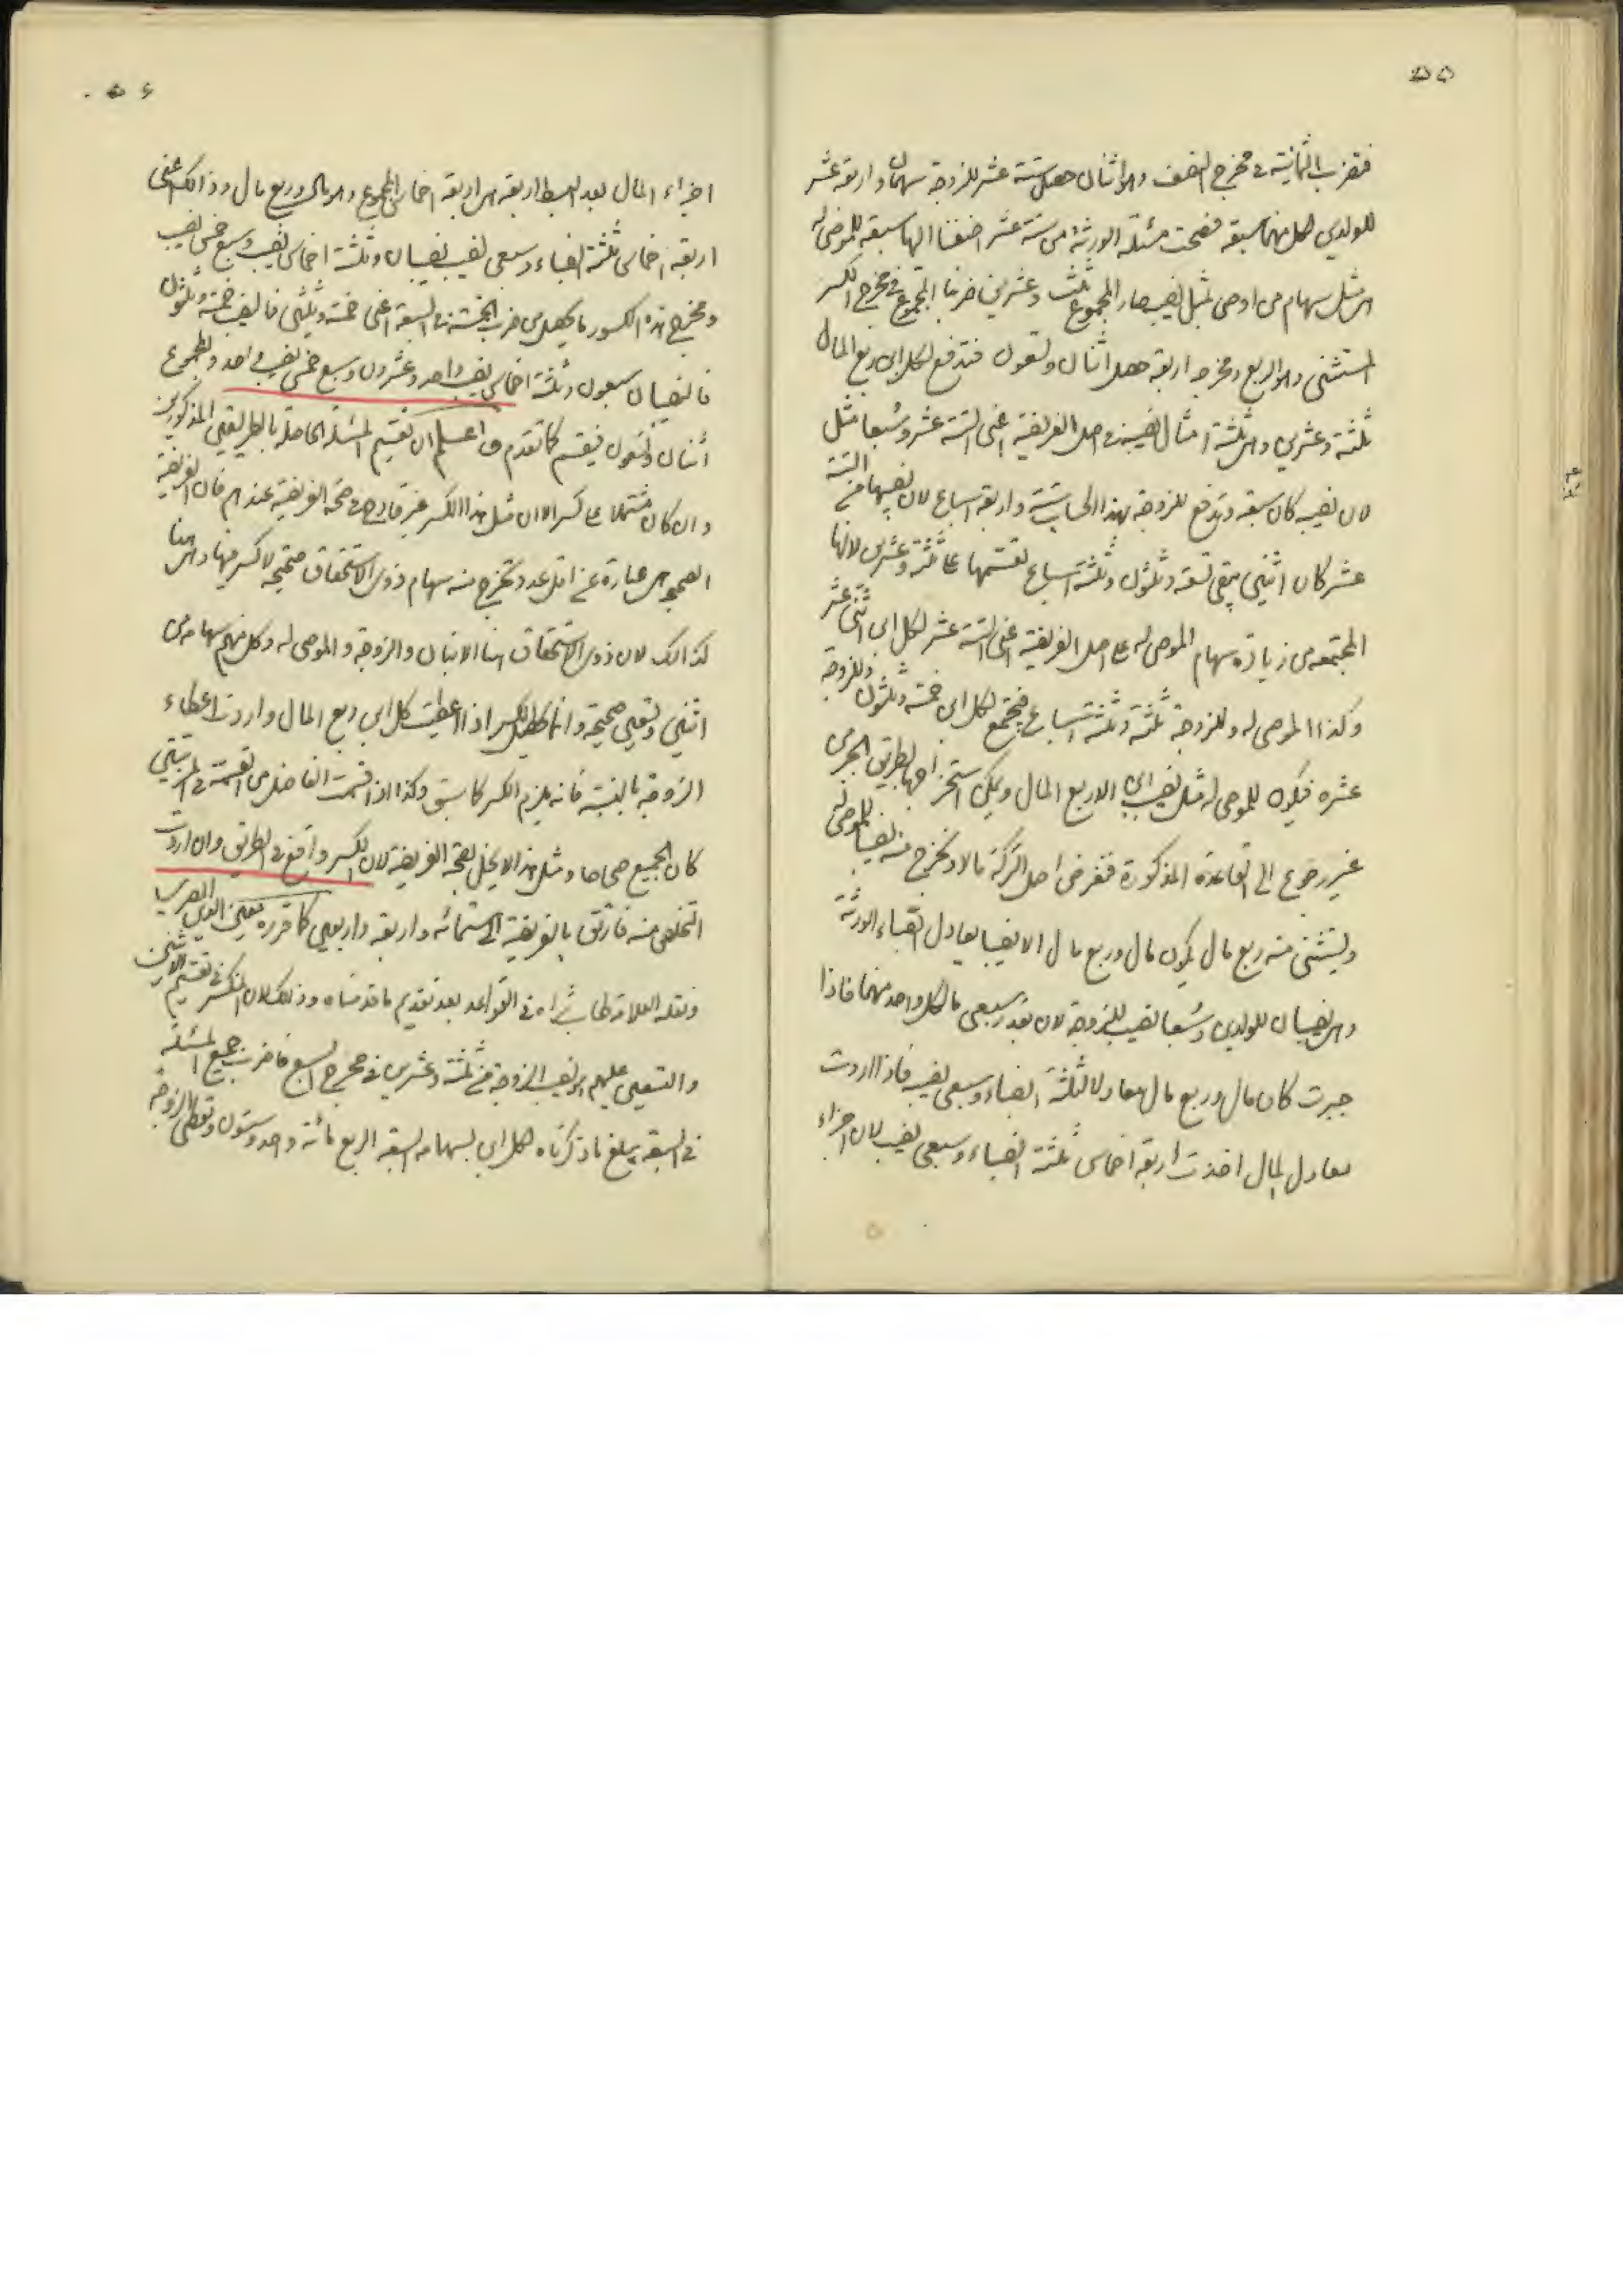 ٥٥
فتضرب الثمانية في مخرج النصف وهو اثنان حصل ستة عشر للزوجة سهمان واربعة عشر
للولدين لكل منهما سبعة فصحت مسئلة الورثة من ستة عشر اضفنا اليها سبعة للموصى له
هى مثل سهام من اوصى بمثل نصيبه صار المجموع ثلثة وعشرين ضربنا المجموع في مخرج الكسر
المستثنى وهو الربع ومخرجه اربعة حصل اثنان وتسعون فتدفع لكل ابن ربع المال
ثلثة وعشرين وهى ثلثة امثال نصيبه في اصل الفريضة اعنى الستة عشر وسبعا مثل
لان نصيبه كان سبعة وتدفع للزوجة بهذا الحساب ستة واربعة اسباع لان نصيبها في الستة
عشر كان اثنين يبقى تسعة وثلثون وثلثة اسباع تقسمها على ثلثة وعشرين لانها
المجتمعة من زيادة سهام الموصى له على اصل الفريضة اعنى الستة عشر لكل ابن اثنى عشر
وكذا الموصى له وللزوجة ثلثة وثلثة اسباع فيجتمع لكل ابن خمسة وثلثون وللزوجة
عشرة فيكون للموصى له مثل نصيب ابن الا ربع المال ويمكن استخراجها بطريق الجبر من
غير رجوع الى القاعدة المذكورة فتفرض اصل التركة مالا وتخرج منه نصيبا للموصى له
ويستثنى منه ربع مال يكون مال وربع مال الا نصيبا يعادل انصباء الورثة
وهى نصيبان للولدين وسبعا نصيب للزوجة لان بقدر سبعى ما لكل واحد منهما فاذا
جبرت كان مال وربع مال معادلا لثلثة انصباء وسبعى نصيب فاذا اردت
معادل المال اخذت اربعة اخماس ثلثة انصباء وسبعى نصيب لان اجزاء
٥٦
اجزاء المال بعد البسط اربعة هى اربعة اخماس المجموع وهو مال وربع مال وذلك اعنى
اربعة اخماس ثلثة انصباء وسبعى نصيب نصيبان وثلثة اخماس نصيب وسبع خمس نصيب
ومخرج هذه الكسور ما يحصل من ضرب الخمسة في السبعة اعنى خمسة وثلثين فالنصيب خمسة وثلثون
فالنصيبان سبعون وثلثة اخماس نصيب واحد وعشرون وسبع خمس نصيب واحد والمجموع
اثنان وتسعون فيقسم كما تقدم واعلم ان تقسيم المسئلة الحاصلة بالطريقين المذكورين
وان كان مشتملا على كسر الا ان مثل هذا الكسر غير قادح في صحة الفريضة عندهم فان الفريضة
الصحيحة هى عبارة عن اقل عدد تخرج منه سهام ذوى الاستحقاق صحيحة لا كسر فيها وهى هنا
كذلك لان ذوى الاستحقاق هنا الابنان والزوجة والموصى له ولكل منهم سهامه من
اثنين وتسعين صحيحة وانما يحصل الكسر اذا اعطيت كل ابن ربع المال واردت اعطاء
الزوجة بالنسبة فانه يلزم الكسر كما سبق وكذا اذا قسمت الفاضل من القسمة في المرتبتين
كان الجميع صحاحا ومثل هذا لا يخل بصحة الفريضة لان الكسر واقع في الطريق وان اردت
التخلص منه فارتق بالفريضة الى ستمائة واربعة واربعين كما قرره معين الدين المصرى
ونقله العلامة طاب ثراه في القواعد بعد تقديم ما قدمناه وذلك لان المنكسر في تقسيم الاثنين
والتسعين عليهم هو نصيب الزوجة في ثلثة وعشرين في مخرج السبع فاضرب جميع المسئلة
في السبعة يبلغ ما ذكرناه لكل ابن بسهامه السبعة الربع مائة واحد وستون وتعطى الزوجة